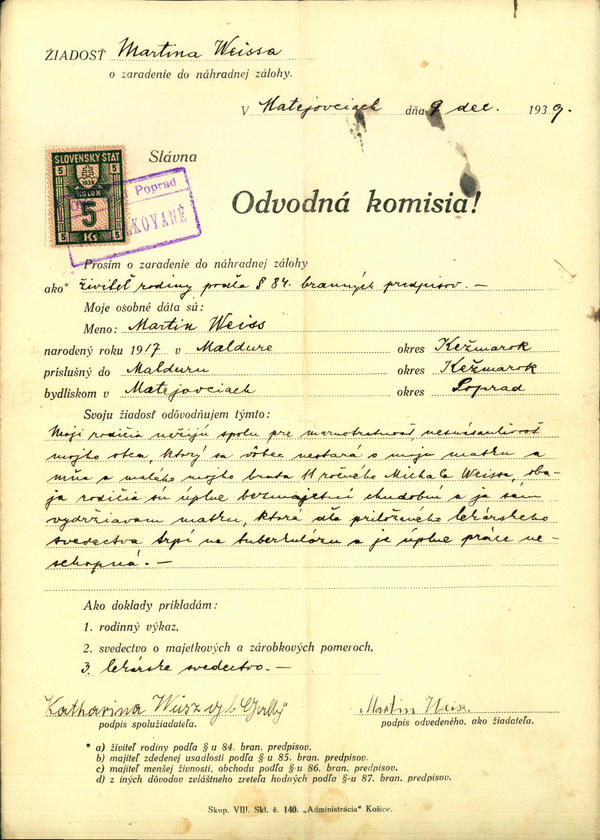 ŽIADOSŤ Martina Weissa
o zaradenie do náhradnej zálohy.
V Matejovciach dňa 9 dec. 1939.
SLOVENSKÝ ŠTÁT
5 5
1939
KOLOK
5
5 Ks 5
Poprad
KOVANÉ
Slávna
Odvodná komisia!
Prosím o zaradenie do náhradnej zálohy
ako* živiteľ rodiny podľa § 84. branných predpisov. —
Moje osobné dáta sú:
Meno: Martin Weiss
narodený roku 1917 v Maldure okres Kežmarok
príslušný do Malduru okres Kežmarok
bydliskom v Matejovciach okres Poprad
Svoju žiadosť odôvodňujem týmto:
Moji rodičia nežijú spolu pre marnotratnosť, neznášanlivosť
mojho otca, ktorý sa vôbec nestará o moju matku a
mňa a malého mojho brata 11 ročného Michala Weissa, oba-
ja rodičia sú úplne bezmajetní chudobní a ja sám
vydržiavam matku, ktorá dľa priloženého lekárskeho
svedectva trpí na tuberkulózu a je úplne práce ne-
schopná. —
Ako doklady prikladám:
1. rodinný výkaz,
2. svedectvo o majetkových a zárobkových pomeroch,
3. lekárske svedectvo. —
Katharina Weisz Martin Weisz
podpis spolužiadateľa. podpis odvedeného, ako žiadateľa.
* a) živiteľ rodiny podľa § u 84. bran. predpisov.
b) majiteľ zdedenej usadlosti podľa § u 85. bran. predpisov.
c) majiteľ menšej živnosti, obchodu podľa §-u 86. bran. predpisov.
d) z iných dôvodov zvláštneho zreteľa hodných podľa §-u 87. bran. predpisov.
Skup. VIII. Skl. č. 140. „Administrácia" Košice.